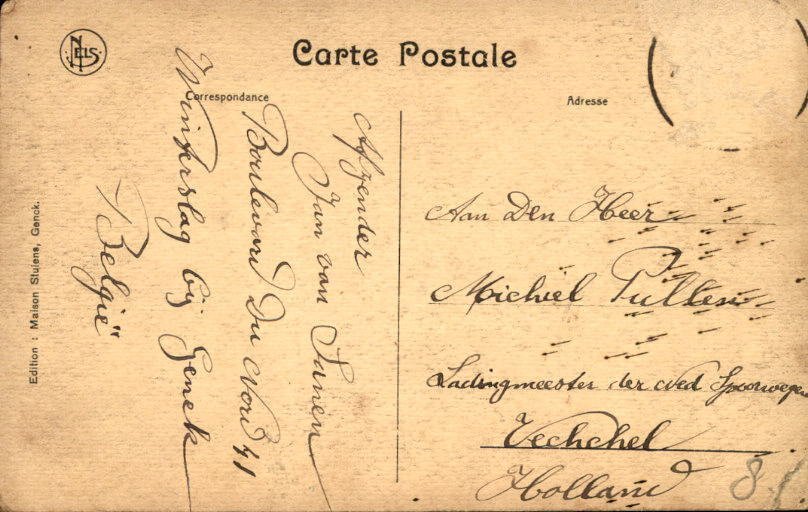 NELS
Carte Postale
Correspondance
Adresse
Afzender
Jan van Sunen
Boulevard Du Nord 41
Winterslag bij Genck
België"
Aan Den Heer
Michiel Pullen
Ladingmeester der Ned Spoorwegen
Vechchel
Holland
8
Edition : Maison Stulens, Genck.